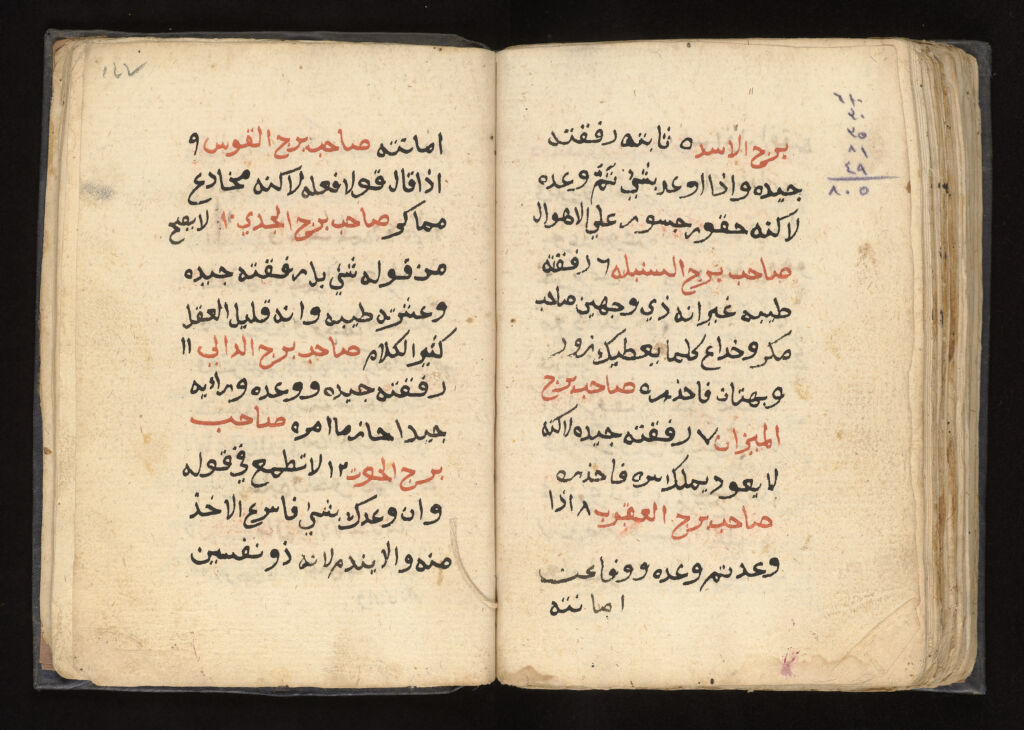 برج الاسد ٥ ثابته رفقته
جيده واذا اوعد بشئ تم وعده
لاكنه حقور جسور علي الاهوال
صاحب برج السنبله ٦ رفقته
طيبه غير انه ذي وجهين صاحب
مكر وخداع كلما يعطيك زور
وبهتان فاحذره صاحب برج
الميزان ٧ رفقته جيده لاكنه
لا يعود يملك سره فاحذره
صاحب برج العقرب ٨ اذا
وعد تم وعده ووفا عن
امانته
٨٠٥
امانته صاحب برج القوس ٩
اذا قال قولا فعله لاكنه مخادع
مماكر صاحب برج الجدي ١٠ لا يصح
من قوله شئ بل رفقته جيده
وعشرته طيبه وانه قليل العقل
كثير الكلام صاحب برج الدالي ١١
رفقته جيده ووعده ورائيه
جيدا حازما امره صاحب
برج الحوت ١٢ لا تطمع في قوله
وان وعدك بشئ فاسرع الاخذ
منه والا يندم لانه ذو نفسين